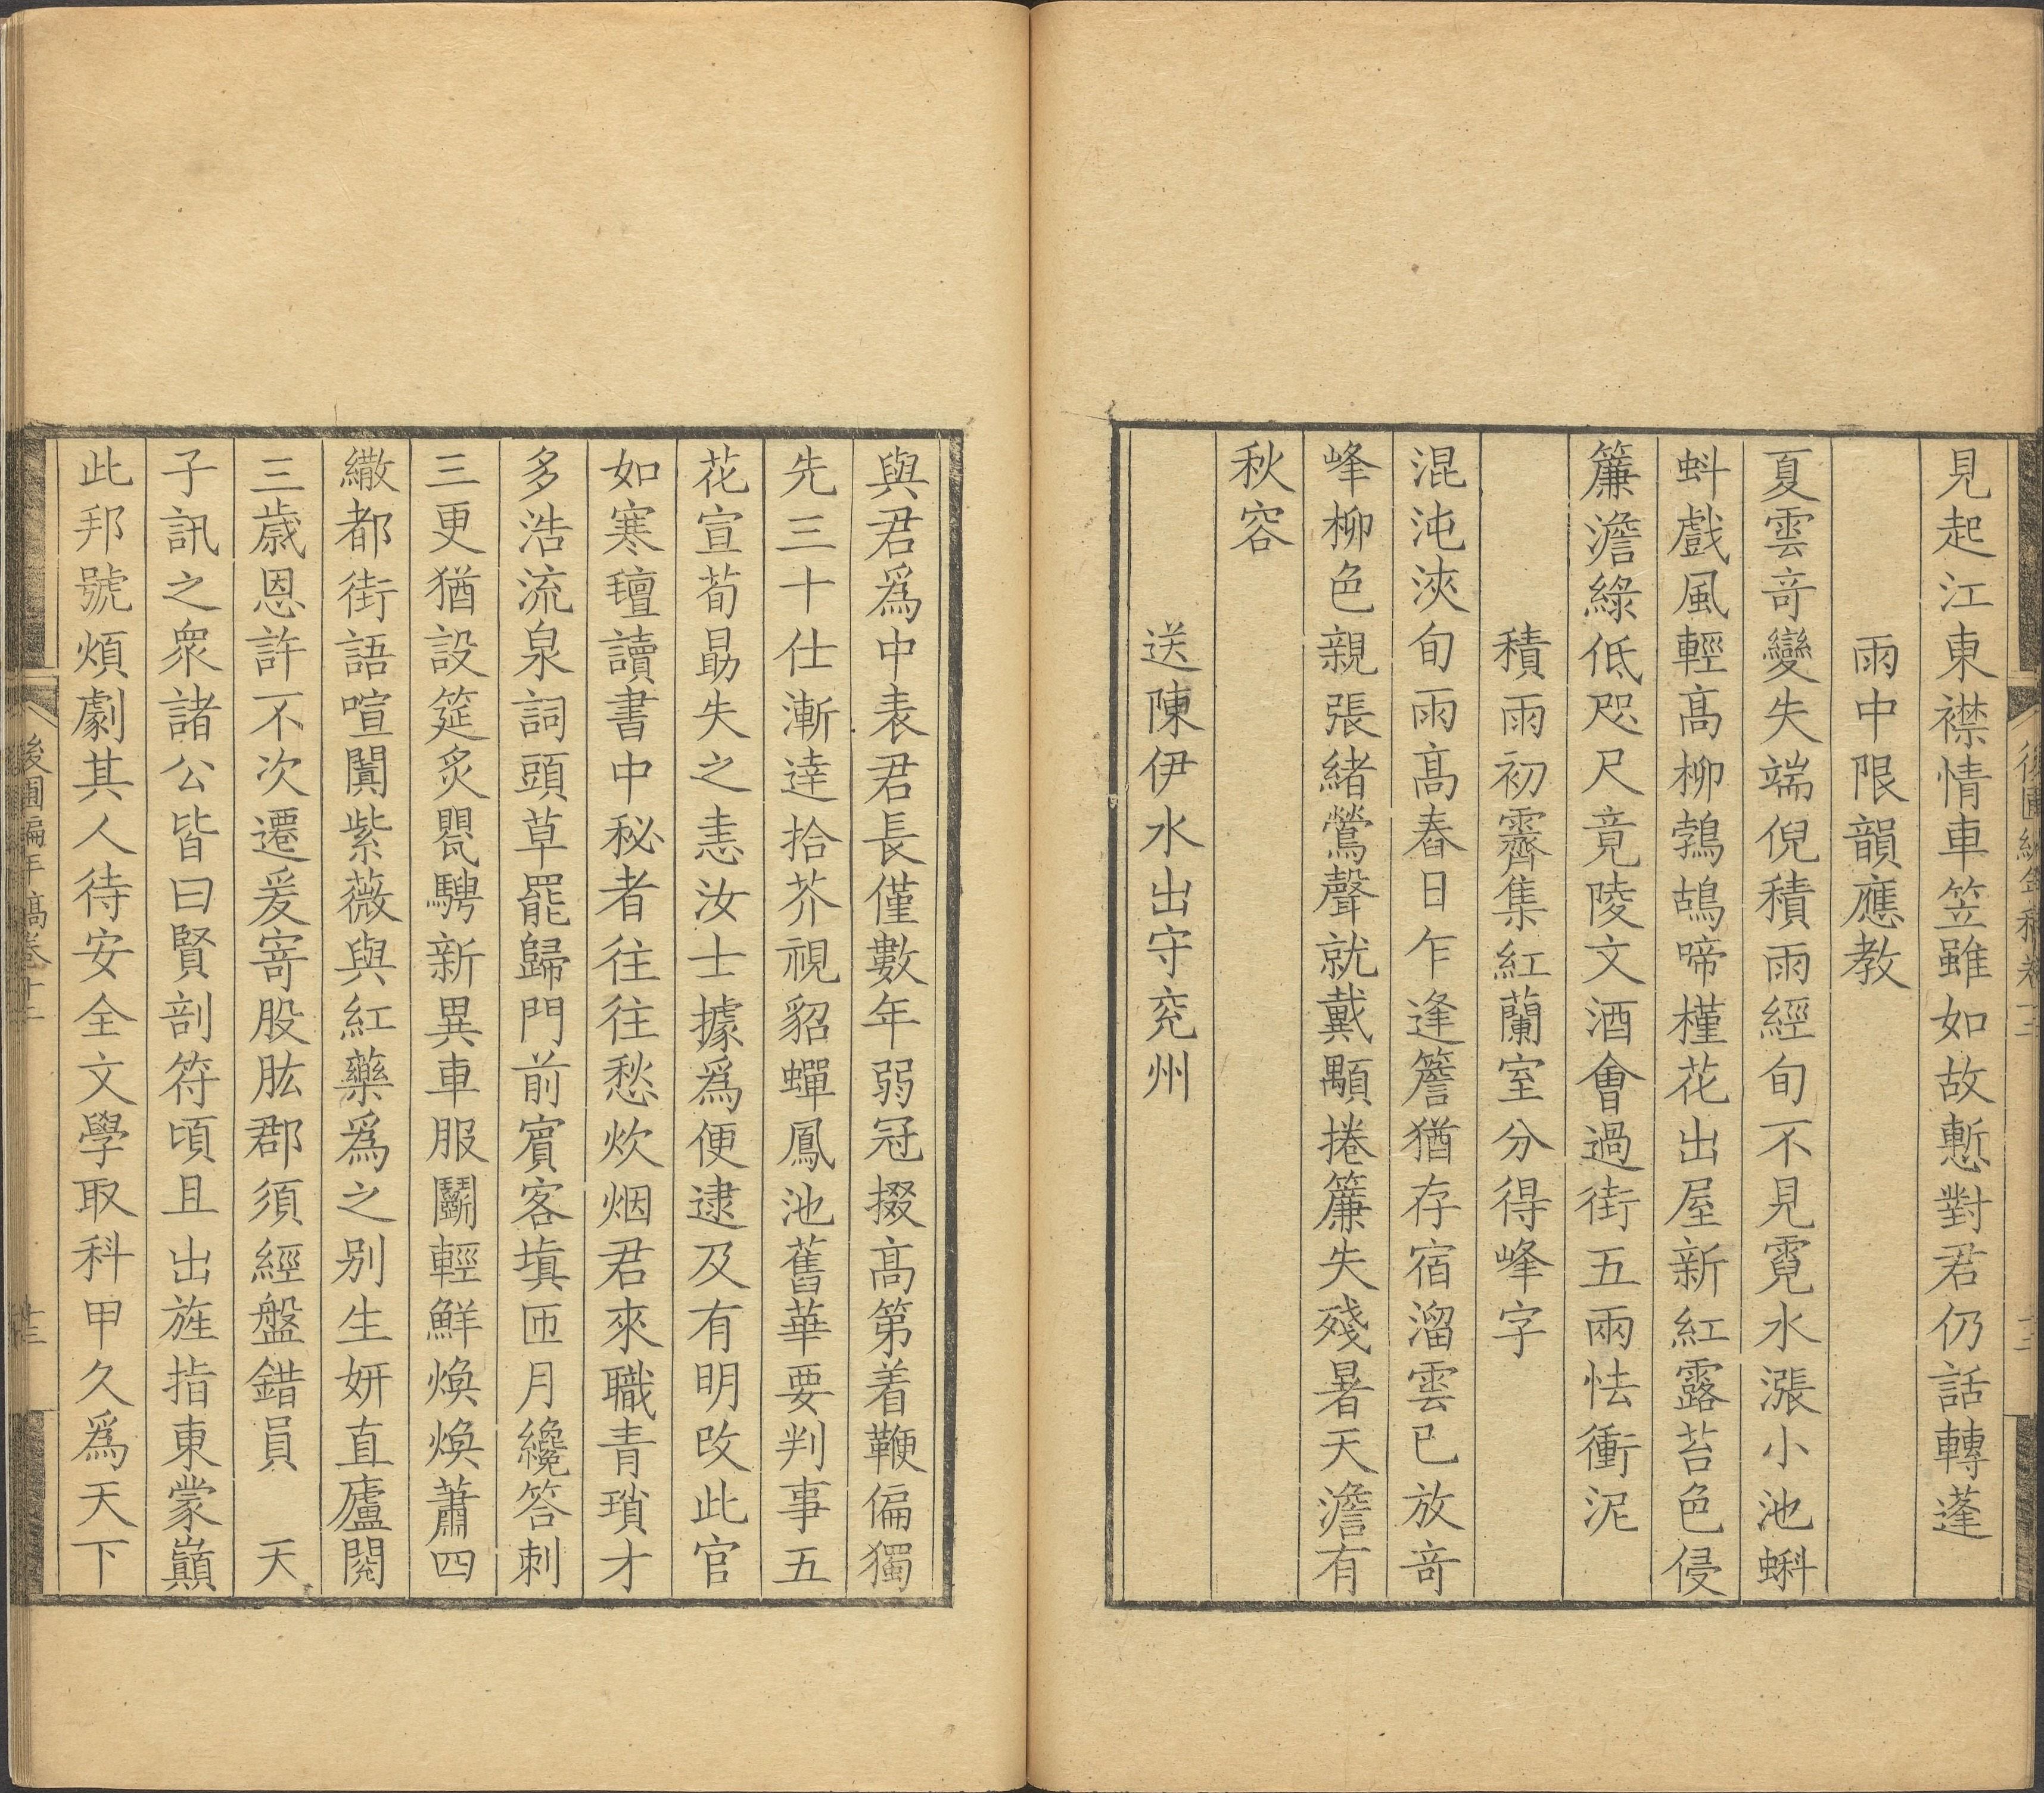 見起江東襟情車笠雖如故慙對君仍話轉蓬
雨中限韻應教
夏雲竒變失端倪積雨經旬不見霓水漲小池蝌
蚪戲風輕髙柳鵓鴣啼槿花出屋新紅露苔色侵
簾澹綠低咫尺竟陵文酒會過街五兩怯衝泥
積雨初霽集紅蘭室分得峰字
混沌浹旬雨髙舂日乍逢簷猶存宿溜雲已放竒
峰柳色親張緒鶯聲就戴顒捲簾失殘暑天澹有
秋容
送陳伊水出守兖州
與君爲中表君長僅數年弱冠掇髙第着鞭偏獨
先三十仕漸達拾芥視貂蟬鳳池舊華要判事五
花宣荀勗失之恚汝士據爲便逮及有明改此官
如寒氊讀書中秘者往往愁炊烟君來職青瑣才
多浩流泉詞頭草罷歸門前賓客填匝月纔答刺
三更猶設筵炙甖騁新異車服鬭輕鮮煥煥蕭四
繖都街語喧闐紫薇與紅藥爲之别生妍直廬閱
三歲恩許不次遷爰寄股肱郡須經盤錯員　天
子訊之衆諸公皆曰賢剖符頃且出旌指東蒙巔
此邦號煩劇其人待安全文學取科甲久爲天下
後圃編年稿卷十三